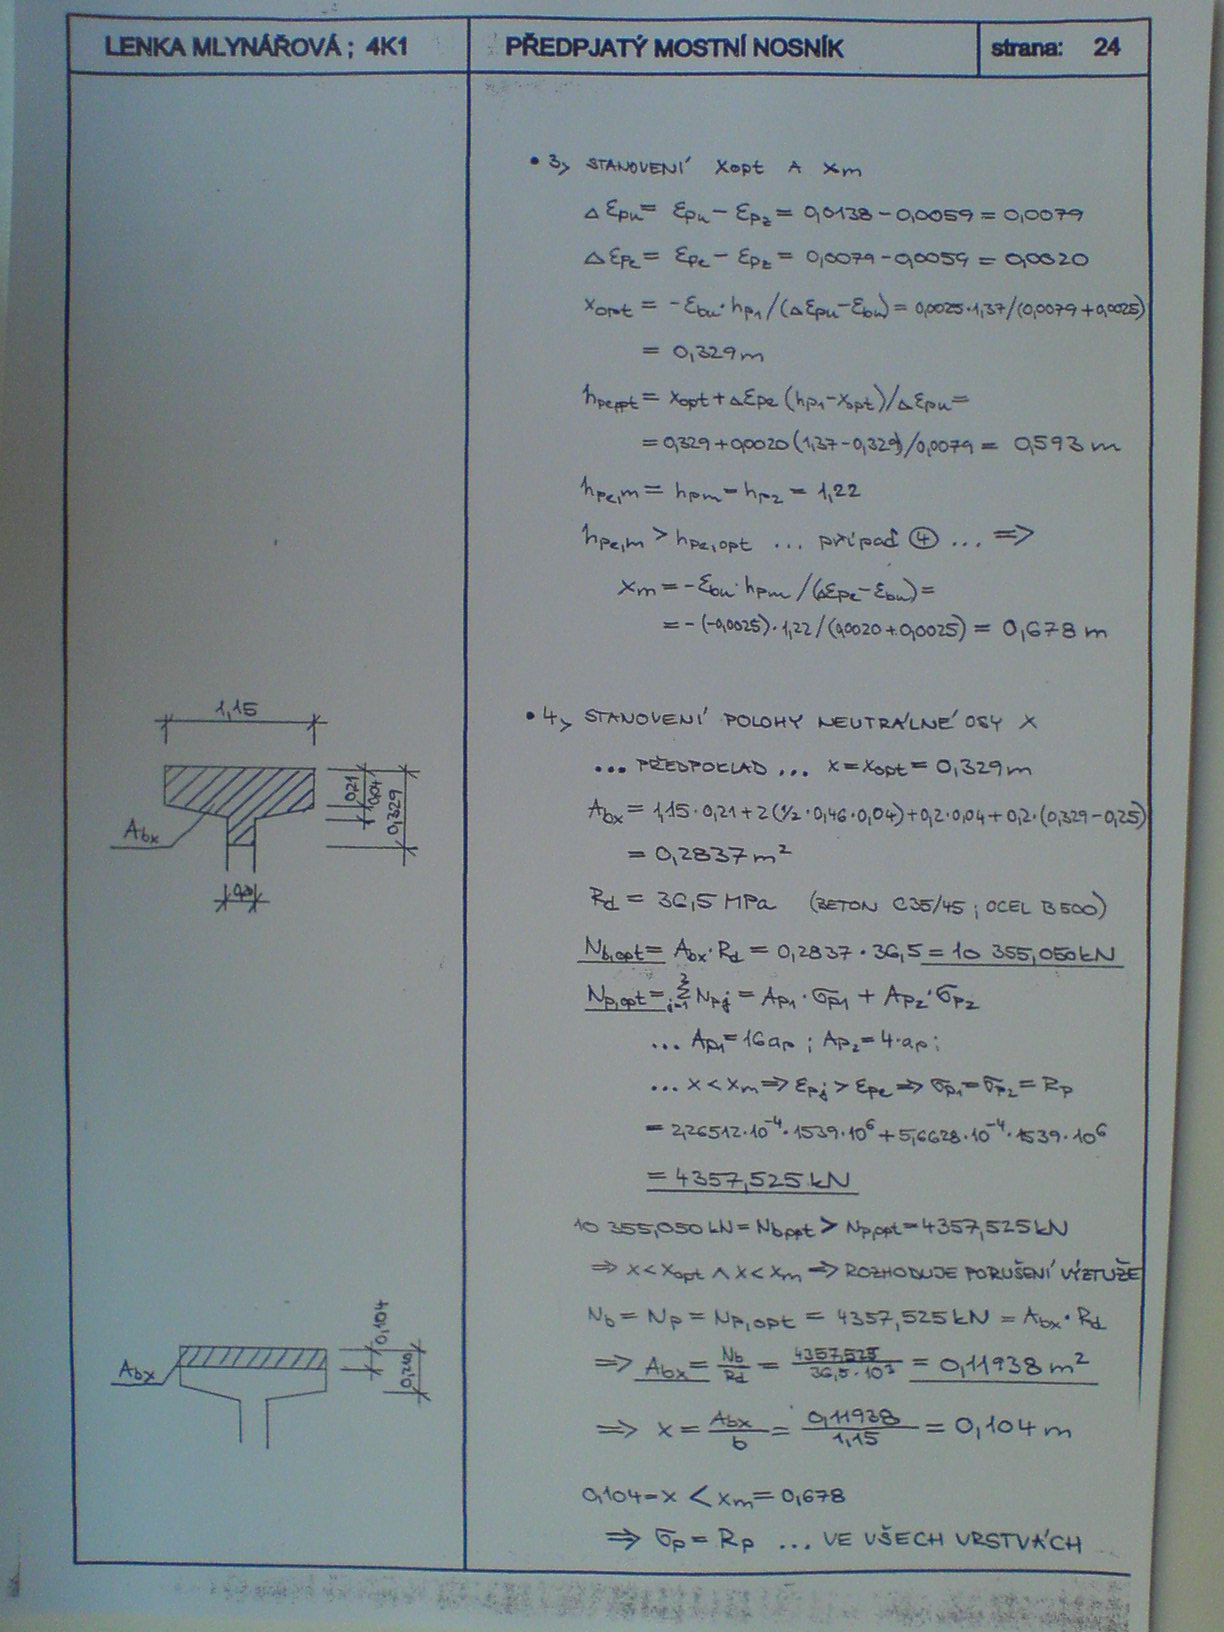 LENKA MLYNÁŘOVÁ ; 4K1
PŘEDPJATÝ MOSTNÍ NOSNÍK
strana: 24
• 3, STANOVENÍ xopt A xm
Δεpu = εpu − εpz = 0,0138 − 0,0059 = 0,0079
Δεpe = εpe − εpz = 0,0079 − 0,0059 = 0,0020
xopt = −εbu · hp1 / (Δεpu − εbu) = 0,0025 · 1,37 / (0,0079 + 0,0025)
= 0,329 m
hpe,opt = xopt + Δεpe (hp1 − xopt) / Δεpu =
= 0,329 + 0,0020 (1,37 − 0,329) / 0,0079 = 0,593 m
hpe,m = hpm = hp2 = 1,22
hpe,m > hpe,opt ... případ ④ ... ⇒
xm = −εbu · hpm / (Δεpe − εbu) =
= −(−0,0025) · 1,22 / (0,0020 + 0,0025) = 0,678 m
• 4, STANOVENÍ POLOHY NEUTRÁLNÉ OSY x
... PŘEDPOKLAD ... x = xopt = 0,329 m
Abx = 1,15 · 0,21 + 2 (1/2 · 0,46 · 0,04) + 0,2 · 0,04 + 0,2 · (0,329 − 0,25)
= 0,2837 m²
Rd = 36,5 MPa (BETON C35/45 ; OCEL B500)
Nb,opt = Abx · Rd = 0,2837 · 36,5 = 10 355,050 kN
Np,opt = Σ j=1 2 Npj = Ap1 · σp1 + Ap2 · σp2
... Ap1 = 16 ap ; Ap2 = 4 · ap ;
... x < xm ⇒ εpj > εpe ⇒ σp1 = σp2 = Rp
= 2,26512 · 10⁻⁴ · 1539 · 10⁶ + 5,6628 · 10⁻⁴ · 1539 · 10⁶
= 4357,525 kN
10 355,050 kN = Nb,opt > Np,opt = 4357,525 kN
⇒ x < xopt ∧ x < xm ⇒ ROZHODUJE PORUŠENÍ VÝZTUŽE
Nb = Np = Np,opt = 4357,525 kN = Abx · Rd
⇒ Abx = Nb/Rd = 4357,525 / 36,5 · 10³ = 0,11938 m²
⇒ x = Abx/b = 0,11938/1,15 = 0,104 m
0,104 = x < xm = 0,678
⇒ σp = Rp ... VE VŠECH VRSTVÁCH
1,15
0,21
0,04
0,329
Abx
0,2
0,104
Abx